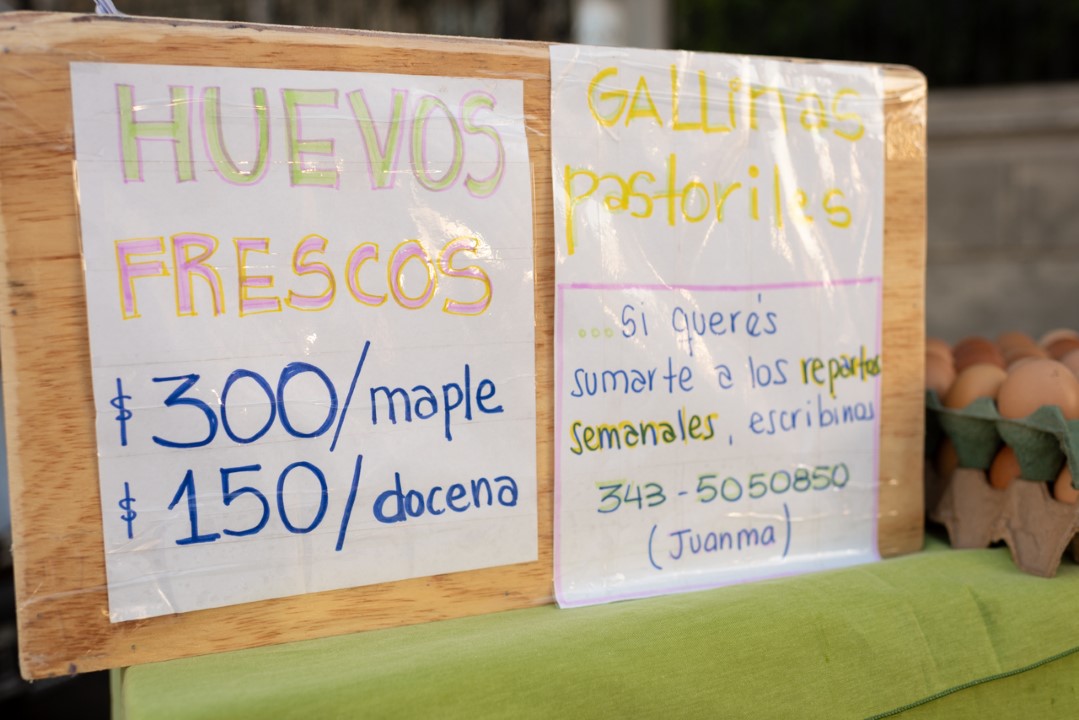 HUEVOS
FRESCOS
$300/maple
$150/docena
GALLINAS
pastoriles
...Si querés
sumarte a los repartos
semanales, escribinos
343-5050850
(Juanma)